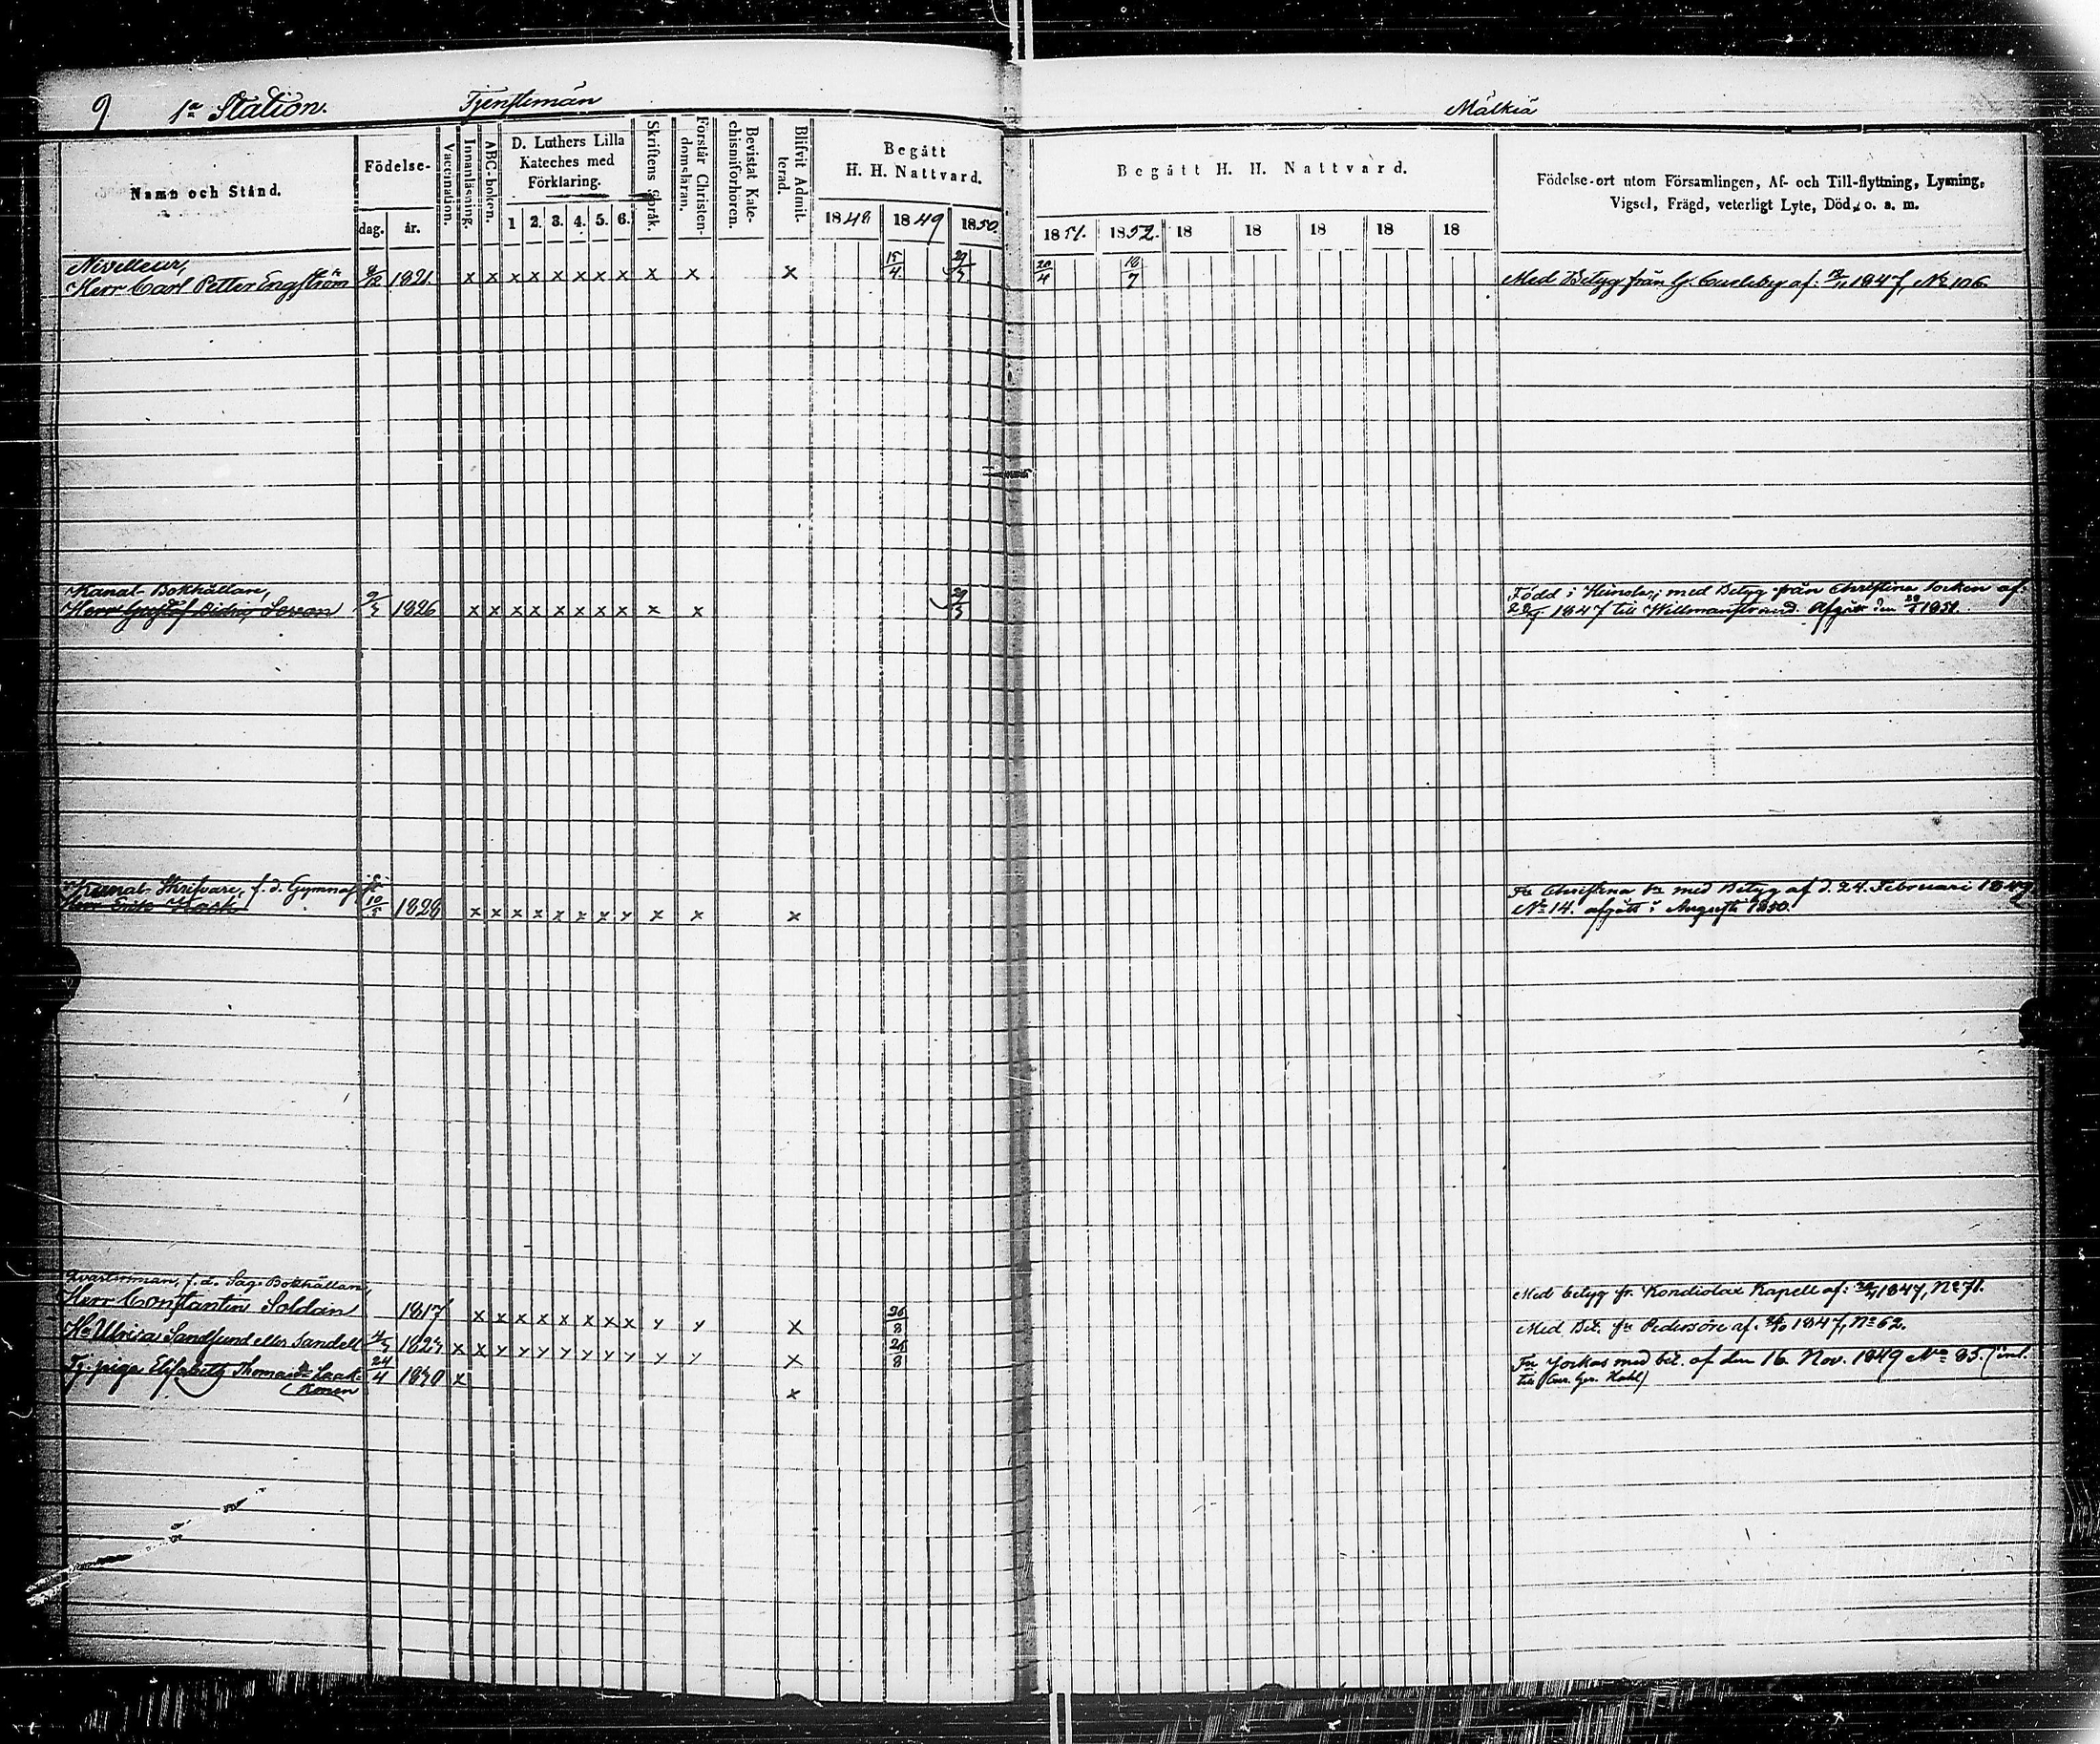 9 1a Station. Tjenstemän Mälkiä
Namn och Stånd.
Födelse-
dag. år.
Vaccination.
Innanläsning.
ABC-boken.
D. Luthers Lilla
Kateches med
Förklaring.
1 2. 3. 4. 5. 6.
Skriftens Språk.
Förstår Christen-
domsläran.
Bevistat Kate-
chismiförhören.
Blifvit Admit-
terad.
Begått
H. H. Nattvard.
1848 1849 1850
Begått H. H. Nattvard.
1851. 1852. 18 18 18 18 18
Födelse-ort utom Församlingen, Af- och Till-flyttning, Lysning,
Vigsel, Frägd, veterligt Lyte, Död, o. a. m.
Nivelleur,
Herr Carl Petter Engström 8/12 1821. x x x x x x x x x x x 15/4. 29/3. 20/4 18/7 Med Betyg från af: 1847, No 106.
Kanal-Bokhållare,
Herr Gustaf 9/3 1826 x x x x x x x x x x 29/3
Född i med Betyg från Christina Socken af.
1847 till Willmanstrand. Afgått den 1851.
Kanal-Skrifvare, f. d. Gymnasist
Herr Erik 10/5 1828 x x x x x x x x x x x
Fr Christina Sn med Betyg af d. 24. Februari 1849
No 14. afgått i Augusti 1850.
f. d. Såg-Bokhållare,
Herr Constantin Soldan 1817 x x x x x x x x x x x 26/8 Med betyg fr. Kondiolax Kapell af: 1847, No 71.
Hu Ulrica Sandlund eller Sandell 1823 x x x x x x x x x x x x 26/8 Med Bet. fr Pedersöre af. 1847, No 62.
Tj. piga Elisabeth Thomasdr Laak- 24/4 1830 x
konen x
Fr Jockas med bet. af den 16. Nov. 1849 No 85.
till